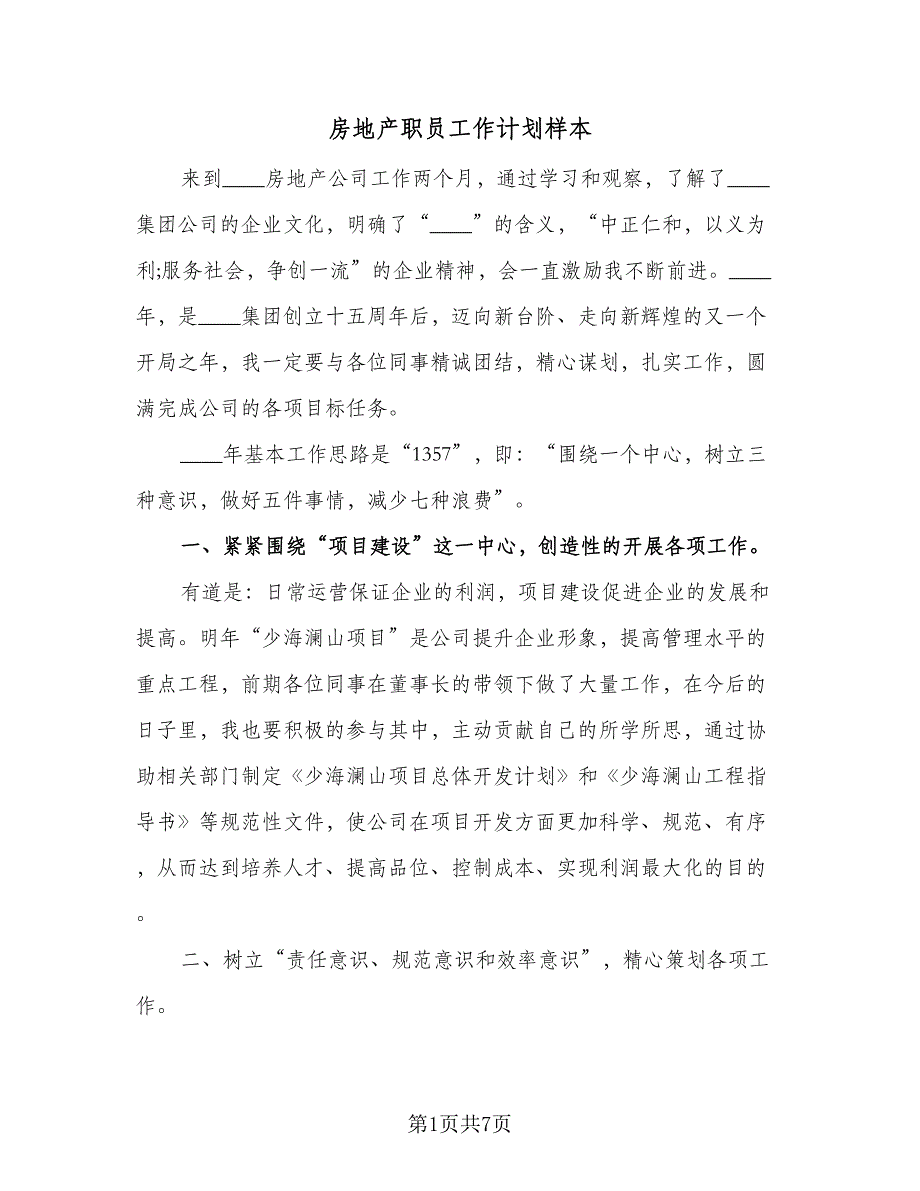 房地产职员工作计划样本
来到____房地产公司工作两个月，通过学习和观察，了解了____
集团公司的企业文化，明确了“____”的含义，“中正仁和，以义为
利;服务社会，争创一流”的企业精神，会一直激励我不断前进。____
年，是____集团创立十五周年后，迈向新台阶、走向新辉煌的又一个
开局之年，我一定要与各位同事精诚团结，精心谋划，扎实工作，圆
满完成公司的各项目标任务。
____年基本工作思路是“1357”，即：“围绕一个中心，树立三
种意识，做好五件事情，减少七种浪费”。
一、紧紧围绕“项目建设”这一中心，创造性的开展各项工作。
有道是：日常运营保证企业的利润，项目建设促进企业的发展和
提高。明年“少海澜山项目”是公司提升企业形象，提高管理水平的
重点工程，前期各位同事在董事长的带领下做了大量工作，在今后的
日子里，我也要积极的参与其中，主动贡献自己的所学所思，通过协
助相关部门制定《少海澜山项目总体开发计划》和《少海澜山工程指
导书》等规范性文件，使公司在项目开发方面更加科学、规范、有序
，从而达到培养人才、提高品位、控制成本、实现利润最大化的目的
。
二、树立“责任意识、规范意识和效率意识”，精心策划各项工
作。
第1页共7页